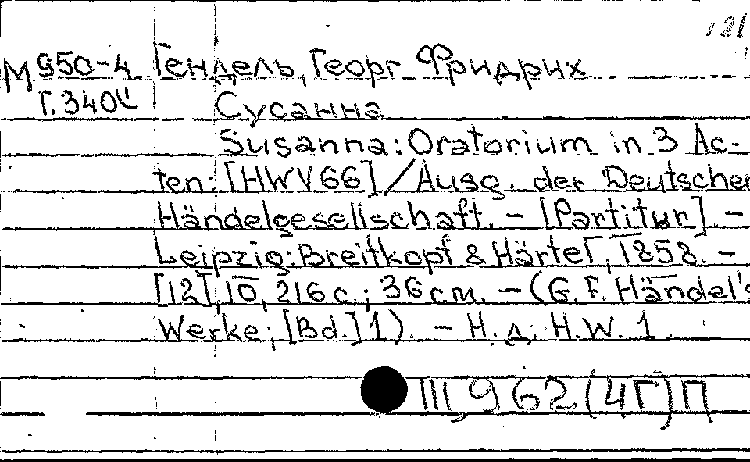 м 950-4 Гендель, Георг Фридрих
Г.340 Сусанна
Susanna: Oratorium in 3 Ac-
ten: [HWV66] / Ausg. der Deutschen
Händelgesellschaft. - [Partitur]. -
Leipzig: Breitkopf & Härtel, 1858. -
[12], 10, 216 с.; 36 см. - (G. F. Händel's
Werke; [Bd.] 1). - Н. д. H.W. 1.
III, 962 (4Г) П